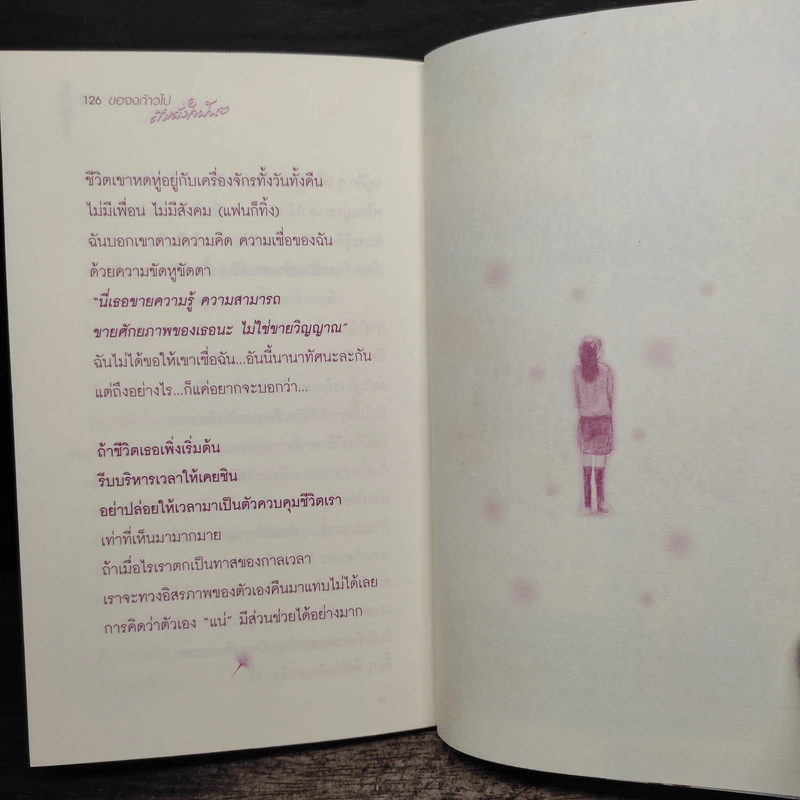 126 ขอจงก้าวไป
ชีวิตเขาหดหู่อยู่กับเครื่องจักรทั้งวันทั้งคืน
ไม่มีเพื่อน ไม่มีสังคม (แฟนก็ทิ้ง)
ฉันบอกเขาตามความคิด ความเชื่อของฉัน
ด้วยความขัดหูขัดตา
"นี่เธอขายความรู้ ความสามารถ
ขายศักยภาพของเธอนะ ไม่ใช่ขายวิญญาณ"
ฉันไม่ได้ขอให้เขาเชื่อฉัน...อันนี้นานาทัศนะละกัน
แต่ถึงอย่างไร...ก็แค่อยากจะบอกว่า...
ถ้าชีวิตเธอเพิ่งเริ่มต้น
รีบบริหารเวลาให้เคยชิน
อย่าปล่อยให้เวลามาเป็นตัวควบคุมชีวิตเรา
เท่าที่เห็นมามากมาย
ถ้าเมื่อไรเราตกเป็นทาสของกาลเวลา
เราจะทวงอิสรภาพของตัวเองคืนมาแทบไม่ได้เลย
การคิดว่าตัวเอง "แน่" มีส่วนช่วยได้อย่างมาก